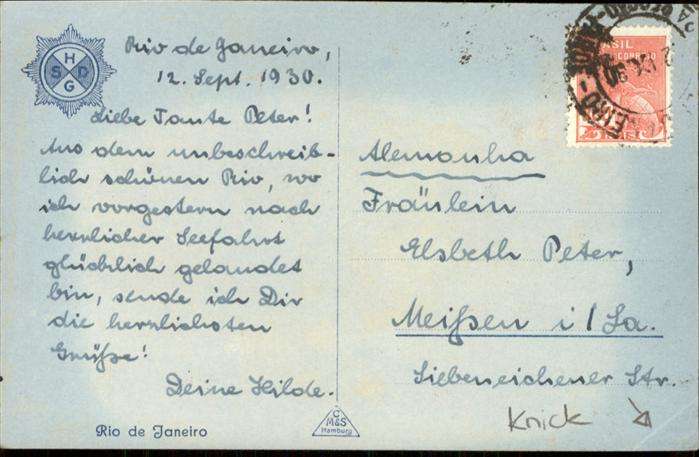 H
S D
D G
Rio de Janeiro,
12. Sept. 1930.
Liebe Tante Peter!
Aus dem unbeschreib-
lich schönen Rio, wo
ich vorgestern nach
herrlicher Seefahrt
glücklich gelandet
bin, sende ich Dir
die herzlichsten
Grüße!
Deine Hilde.
Rio de Janeiro
C
M&S
Hamburg
BRASIL
CORREIO
Alemanha
Fräulein
Elsbeth Peter,
Meißen i/Sa.
Siebeneichener Str.
Knick